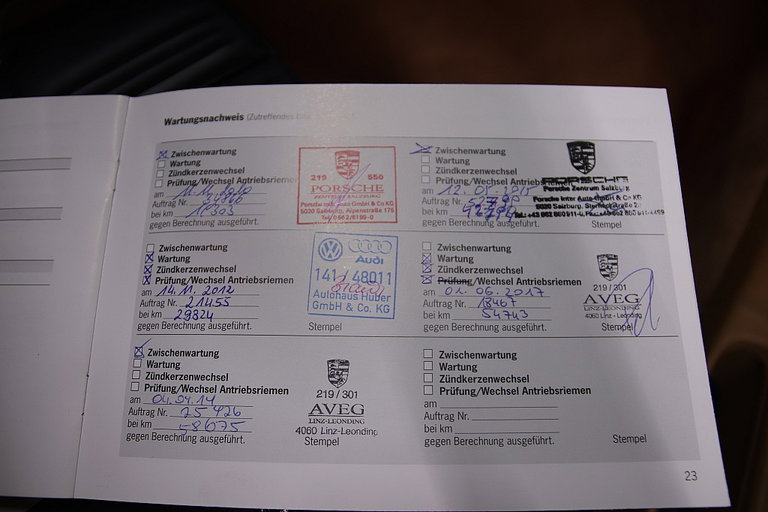 Wartungsnachweis (Zutreffendes
Zwischenwartung
Wartung
Zündkerzenwechsel
Prüfung/Wechsel Antriebsriemen
am
Auftrag Nr.
bei km
gegen Berechnung ausgeführt.
219 550
PORSCHE
5020 Salzburg, Alpenstraße 175
Zwischenwartung
Wartung
Zündkerzenwechsel
Prüfung/Wechsel Antriebsriemen
am 12. 05. 2015
Auftrag Nr.
bei km
gegen Berechnung ausgeführt.
PORSCHE
Porsche Zentrum Salzburg
Stempel
Zwischenwartung
Wartung
Zündkerzenwechsel
Prüfung/Wechsel Antriebsriemen
am 14.11.2012
Auftrag Nr. 21455
bei km 29824
gegen Berechnung ausgeführt.
Audi
141 / 48011
Autohaus Huber
GmbH & Co. KG
Stempel
Zwischenwartung
Wartung
Zündkerzenwechsel
Prüfung/Wechsel Antriebsriemen
am 01. 06. 2017
Auftrag Nr. 18467
bei km 54743
gegen Berechnung ausgeführt.
219 / 301
AVEG
LINZ-LEONDING
4060 Linz - Leonding
Stempel
Zwischenwartung
Wartung
Zündkerzenwechsel
Prüfung/Wechsel Antriebsriemen
am 04.04.19
Auftrag Nr. 25426
bei km 58675
gegen Berechnung ausgeführt.
219 / 301
AVEG
LINZ-LEONDING
4060 Linz-Leonding
Stempel
Zwischenwartung
Wartung
Zündkerzenwechsel
Prüfung/Wechsel Antriebsriemen
am
Auftrag Nr.
bei km
gegen Berechnung ausgeführt.
Stempel
23